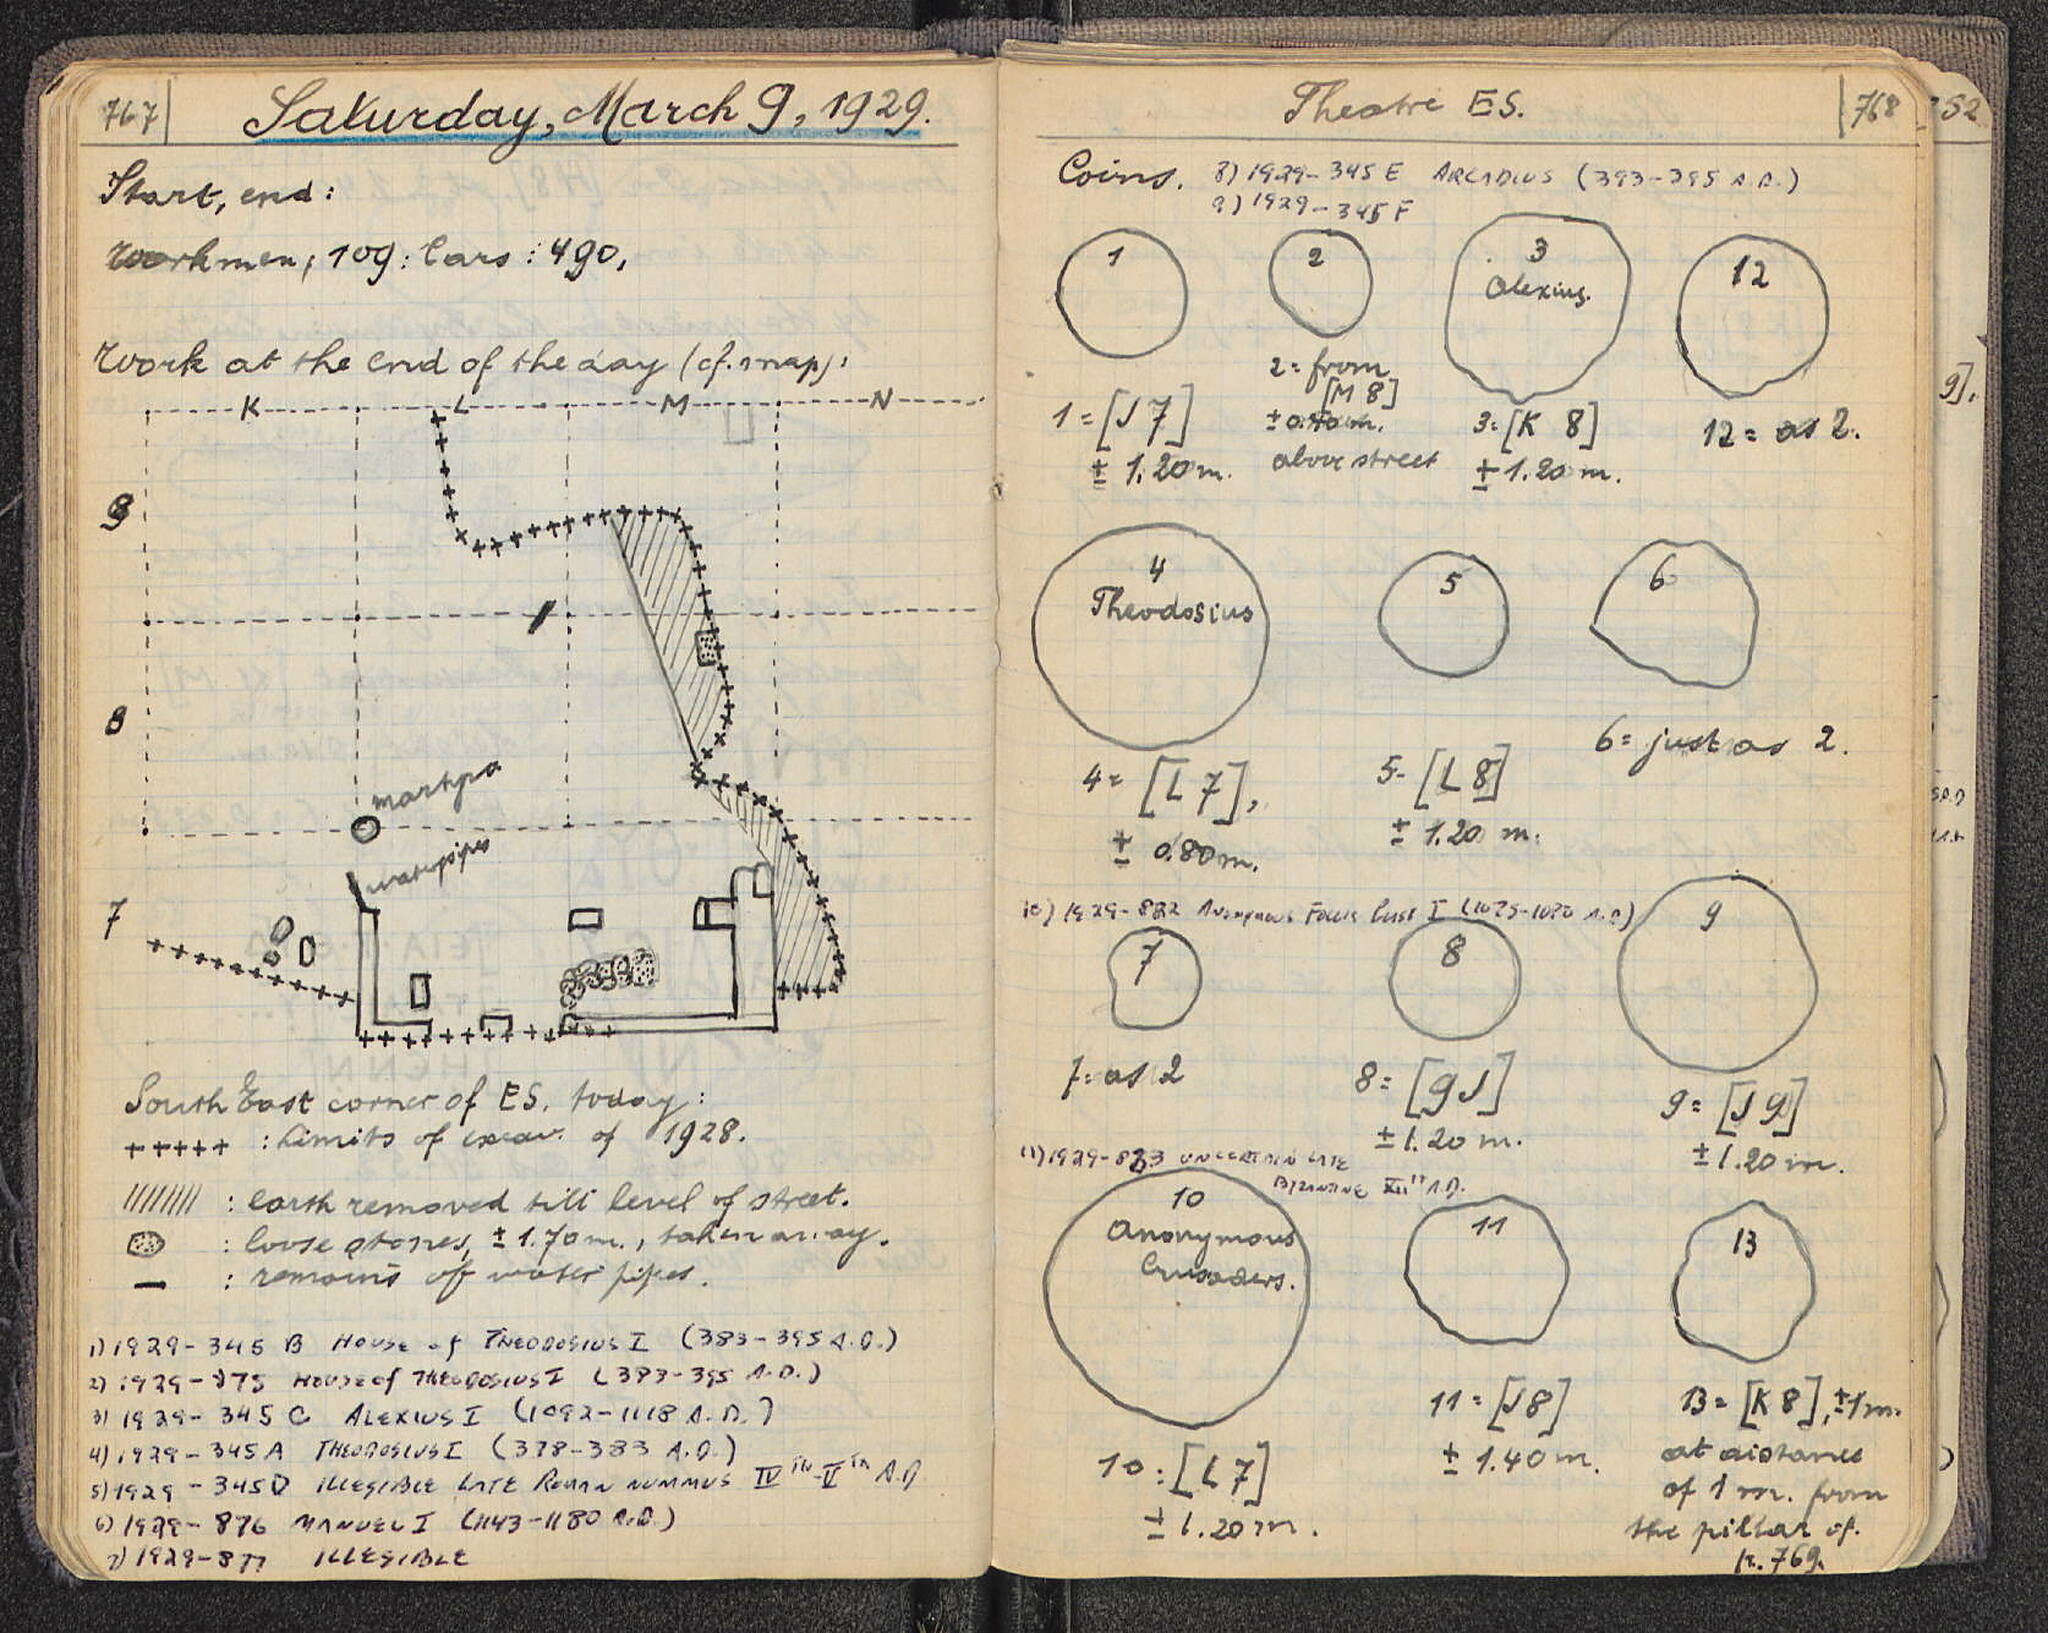 767
Saturday, March 9, 1929.
Start, end:
Workmen; 109: Cars: 490,
Work at the end of the day (cf. map):
K L M N
9
8
7
waterpipes
South East corner of ES. today:
+++++ : limits of excav. of 1928.
: earth removed till level of street.
: loose stones, ± 1.70 m., taken away.
: remains of water pipes.
1) 1929-345 B HOUSE of THEODOSIUS I (383-395 A.D.)
2) 1929-875 HOUSE of THEODOSIUS I (383-395 A.D.)
3) 1929-345 C ALEXIUS I (1092-1118 A.D.)
4) 1929-345 A THEODOSIUS I (378-383 A.D.)
5) 1929-345 D ILLEGIBLE LATE ROMAN NUMMUS IVTH-VTH A.D
6) 1929-876 MANUEL I (1143-1180 A.D.)
7) 1929-877 ILLEGIBLE
Theatre ES.
768
252
Coins.
8) 1929-345 E ARCADIUS (393-395 A.D.)
9) 1929-345 F
1
2
3
Alexius.
12
1=[J 7]
± 1.20 m.
2= from
[M 8]
above street
3=[K 8]
± 1.20 m.
12 = as 2.
4
Theodosius
5
6
4= [L 7],
± 0.80 m.
5- [L 8]
± 1.20 m.
6= just as 2.
10) 1929-822 ANONYMOUS FOLLIS CLASS I (1075-1080 A.D.)
7
8
9
7= as 2
8= [9 J]
± 1.20 m.
9= [J 9]
± 1.20 m.
11) 1929-823 UNCERTAIN LATE
BYZANTINE XIITH A.D.
10
Anonymous
Crusaders.
11
13
10:[L 7]
± 1.20 m.
11=[J 8]
± 1.40 m.
13= [K 8], ± 1 m.
at distance
of 1 m. from
the pillar of.
p. 769.
9].